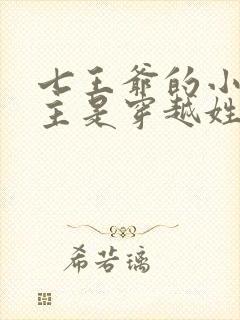 七王爷的小
主是穿越姓
希若璃